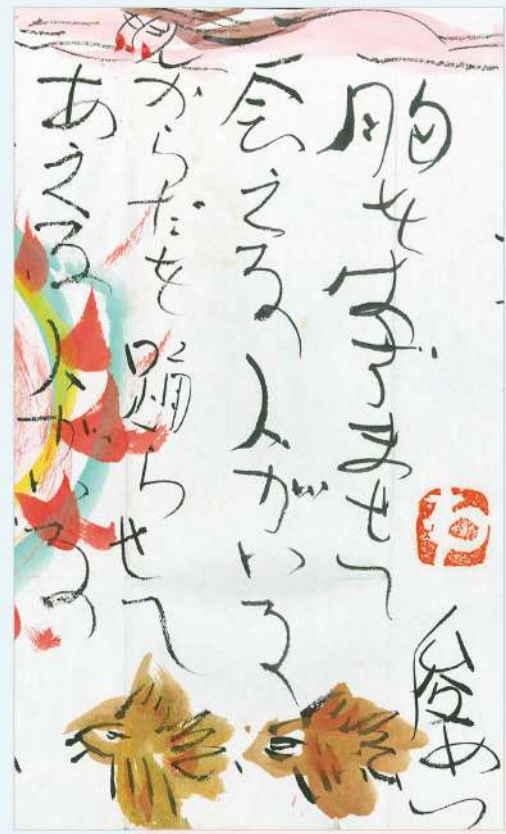 胸をはずませて
会える人がいる
からだを踊らせて
あえる人がいる